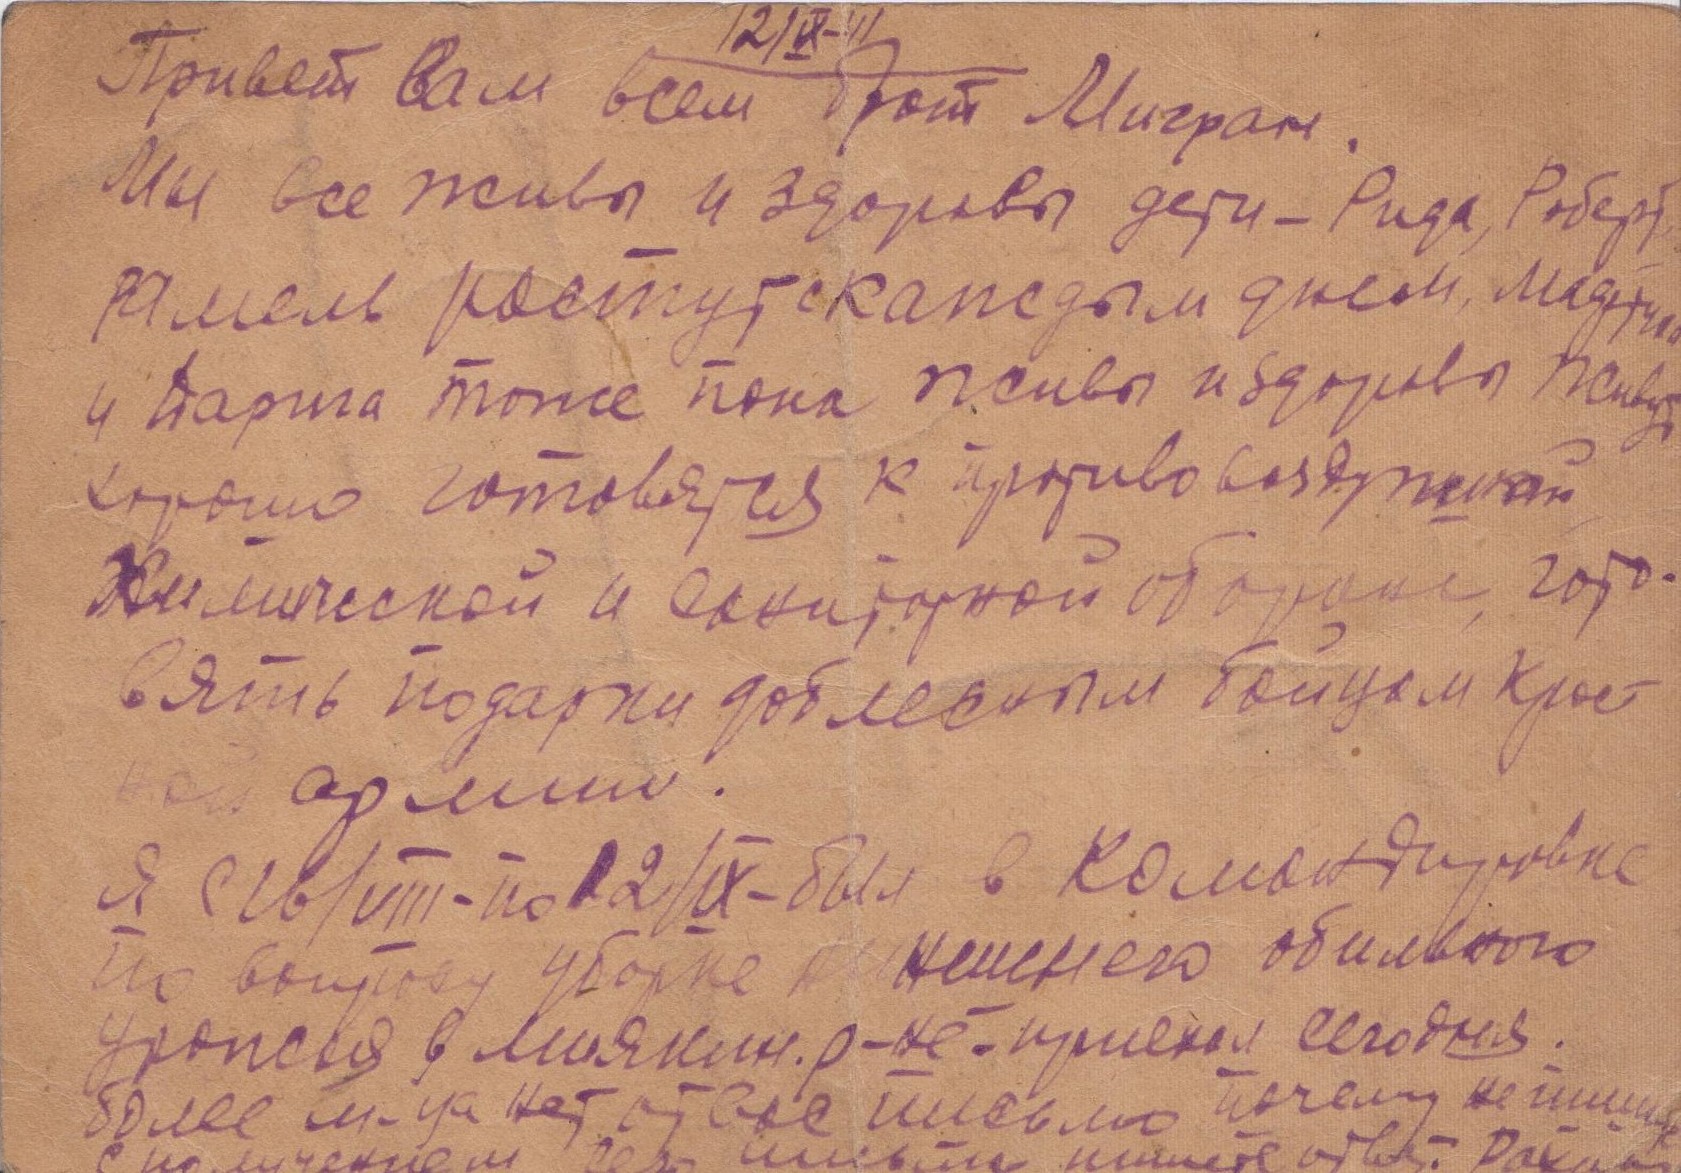 12/IX-41
Привет Вам всем брат Мигран.
Мы все живы и здоровы дети – Рида, Роберт,
Рамель растут с каждым днем,
и тоже пока живы и здоровы живут
хорошо готовятся к противовоздушной,
Химической и санитарной обороне, гото-
вять подарки доблесным бойцам Крас
ной армии.
Я с 26/VIII - по 12/IX - был в командировке
По вопросу уборке нынешнего обильного
урожая в Миякин. р-не - приехал сегодня.
более м-ца нет от Вас письмо почему не пишите
с получением сего письма пишите ответ.